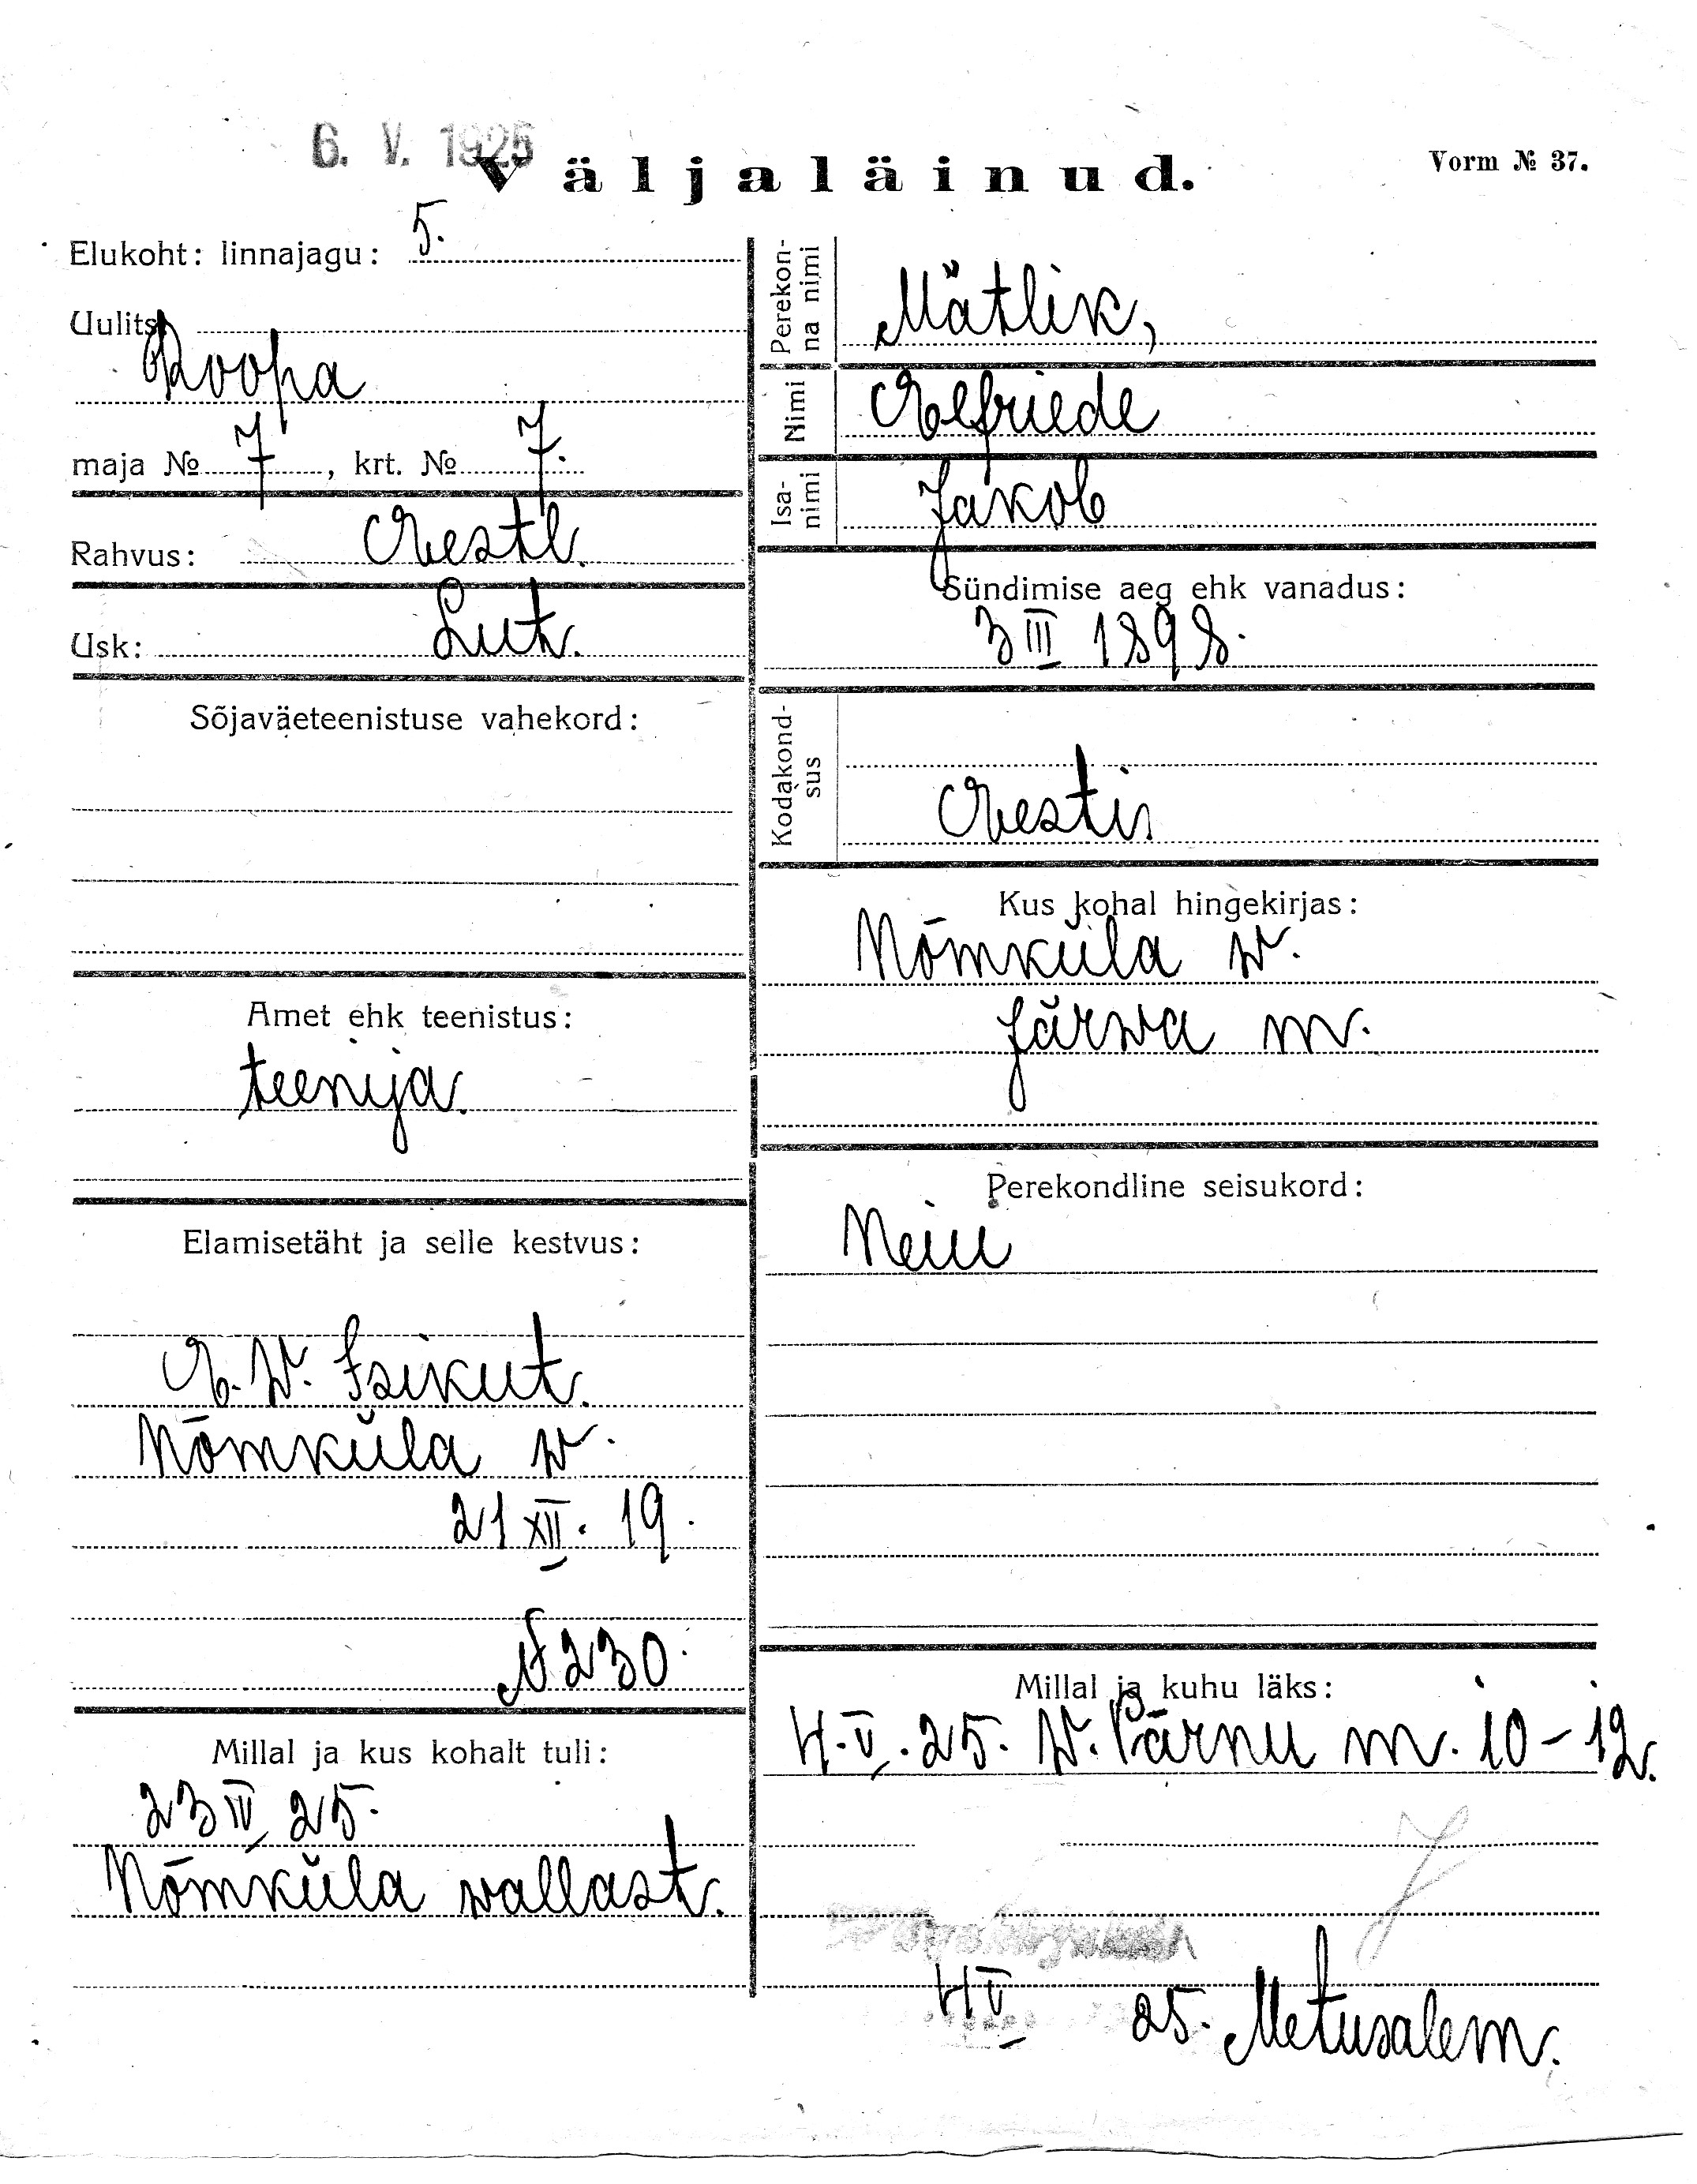 6. V. 1925
Väljaläinud.
Vorm № 37.
Elukoht: linnajagu: 5.
Uulits:
Roopa
maja № 7, krt. № 7.
Rahvus: Eestl.
Usk: Lut.
Sõjaväeteenistuse vahekord:
Amet ehk teenistus:
teenija
Elamisetäht ja selle kestvus:
E. W. Isikut.
Nõmküla w.
21 XII. 19.
№ 230.
Millal ja kus kohalt tuli:
23 IV 25.
Nõmküla wallast.
Perekon-
na nimi
Mätlik,
Nimi
Elfriede
Isa-
nimi
Jakob
Sündimise aeg ehk vanadus:
3 III 1898.
Kodakond-
sus
Eesti
Kus kohal hingekirjas:
Nõmküla w.
Järwa m.
Perekondline seisukord:
Neiu
Millal ja kuhu läks:
4. V. 25. W. Pärnu m. 10-12.
4 V 25. Metusalem.